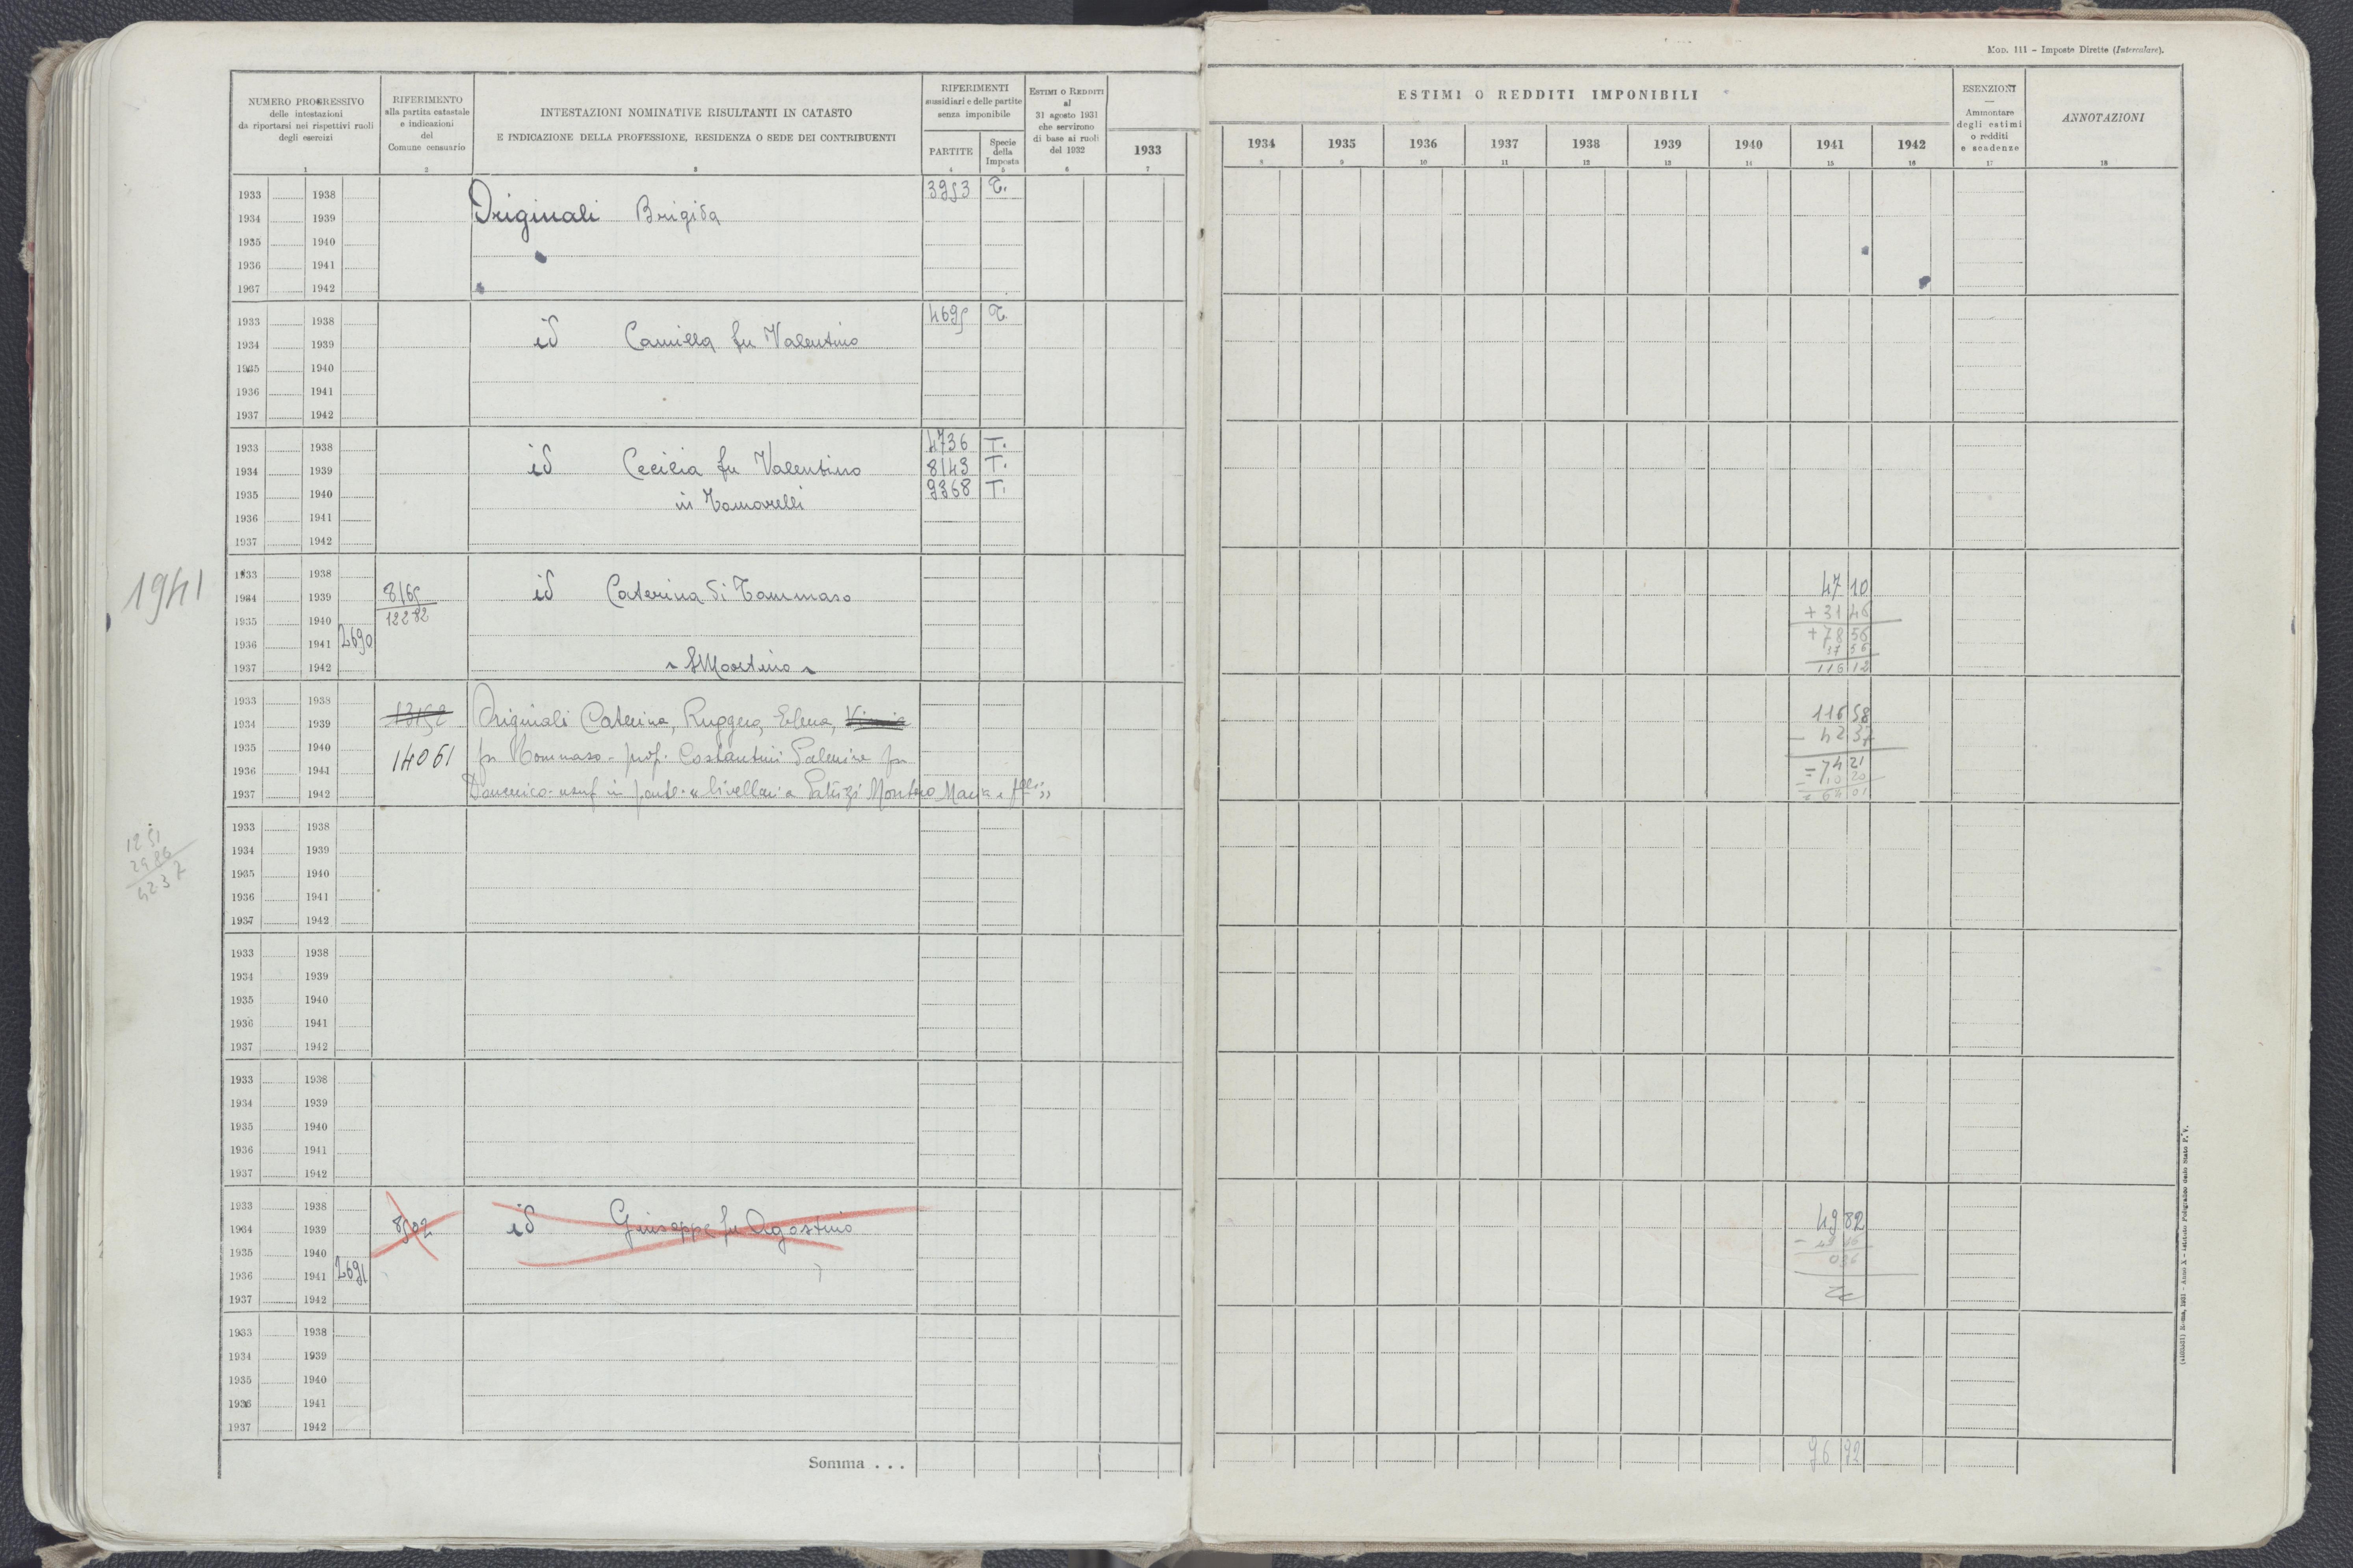 MOD. 111 - Imposte Dirette (Intercalare).
NUMERO PROGRESSIVO
delle intestazioni
da riportarsi nei rispettivi ruoli
degli esercizi
1
RIFERIMENTO
alla partita catastale
e indicazioni
del
Comune censuario
2
INTESTAZIONI NOMINATIVE RISULTANTI IN CATASTO
E INDICAZIONE DELLA PROFESSIONE, RESIDENZA O SEDE DEI CONTRIBUENTI
3
RIFERIMENTI
sussidiari e delle partite
senza imponibile
PARTITE
4
Specie
della
Imposta
5
ESTIMI O REDDITI
al
31 agosto 1931
che servirono
di base ai ruoli
del 1932
6
1933
7
ESTIMI O REDDITI IMPONIBILI
1934 1935 1936 1937 1938 1939 1940 1941 1942
8 9 10 11 12 13 14 15 16
ESENZIONI
—
Ammontare
degli estimi
o redditi
e scadenze
17
ANNOTAZIONI
18
1933 1938 3953 T.
1934 1939 Originali Brigida
1935 1940
1936 1941
1937 1942
1933 1938 4695 T.
1934 1939 id Camilla fu Valentino
1935 1940
1936 1941
1937 1942
1933 1938 4736 T.
1934 1939 id Cecilia fu Valentino 8143 T.
1935 1940 in Tamorelli 9368 T.
1936 1941
1937 1942
1941
1933 1938 47 10
1934 1939 8165 id Caterina di Tommaso
1935 1940 12282 + 31 46
1936 1941 2690 + 78 56
37 56
1937 1942 116 12
1933 1938
1934 1939 13152 Originali Caterina, Ruggero, Elena, 116 58
1935 1940 fu Tommaso - prop. Costantini Palmira fu - 42 37
1936 1941 14061 = 74 21
10 20
1937 1942 Domenico - usuf in parte - "livellari a Patrizi Montoro Maria e flli" = 64 01
12 51
29 86
42 37
1933 1938
1934 1939
1935 1940
1936 1941
1937 1942
1933 1938
1934 1939
1935 1940
1936 1941
1937 1942
1933 1938
1934 1939
1935 1940
1936 1941
1937 1942
1933 1938
1934 1939 8502 id Giuseppe fu Agostino 49 82
1935 1940
1936 1941 2691 0 36
1937 1942
1933 1938
1934 1939
1935 1940
1936 1941
1937 1942
Somma . . . 96 92
Roma, 1931 - Anno X - Istituto Poligrafico dello Stato P. V.